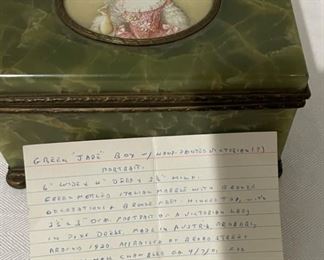 GREEN "JADE" BOX W/ HAND-PAINTED VICTORIAN (?)
PORTRAIT.
6" WIDE X 4" DEEP X 2½" HIGH.
GREEN MOTTLED ITALIAN MARBLE WITH BRONZE
DECORATIONS & BRONZE FEET. HINGED TOP WITH
2½ X 3" OVAL PORTRAIT OF A VICTORIAN LADY
IN PINK DRESS. MADE IN AUSTRIA, PROBABLY
AROUND 1920. APPRAISED AT BROAD STREET
4/7/01